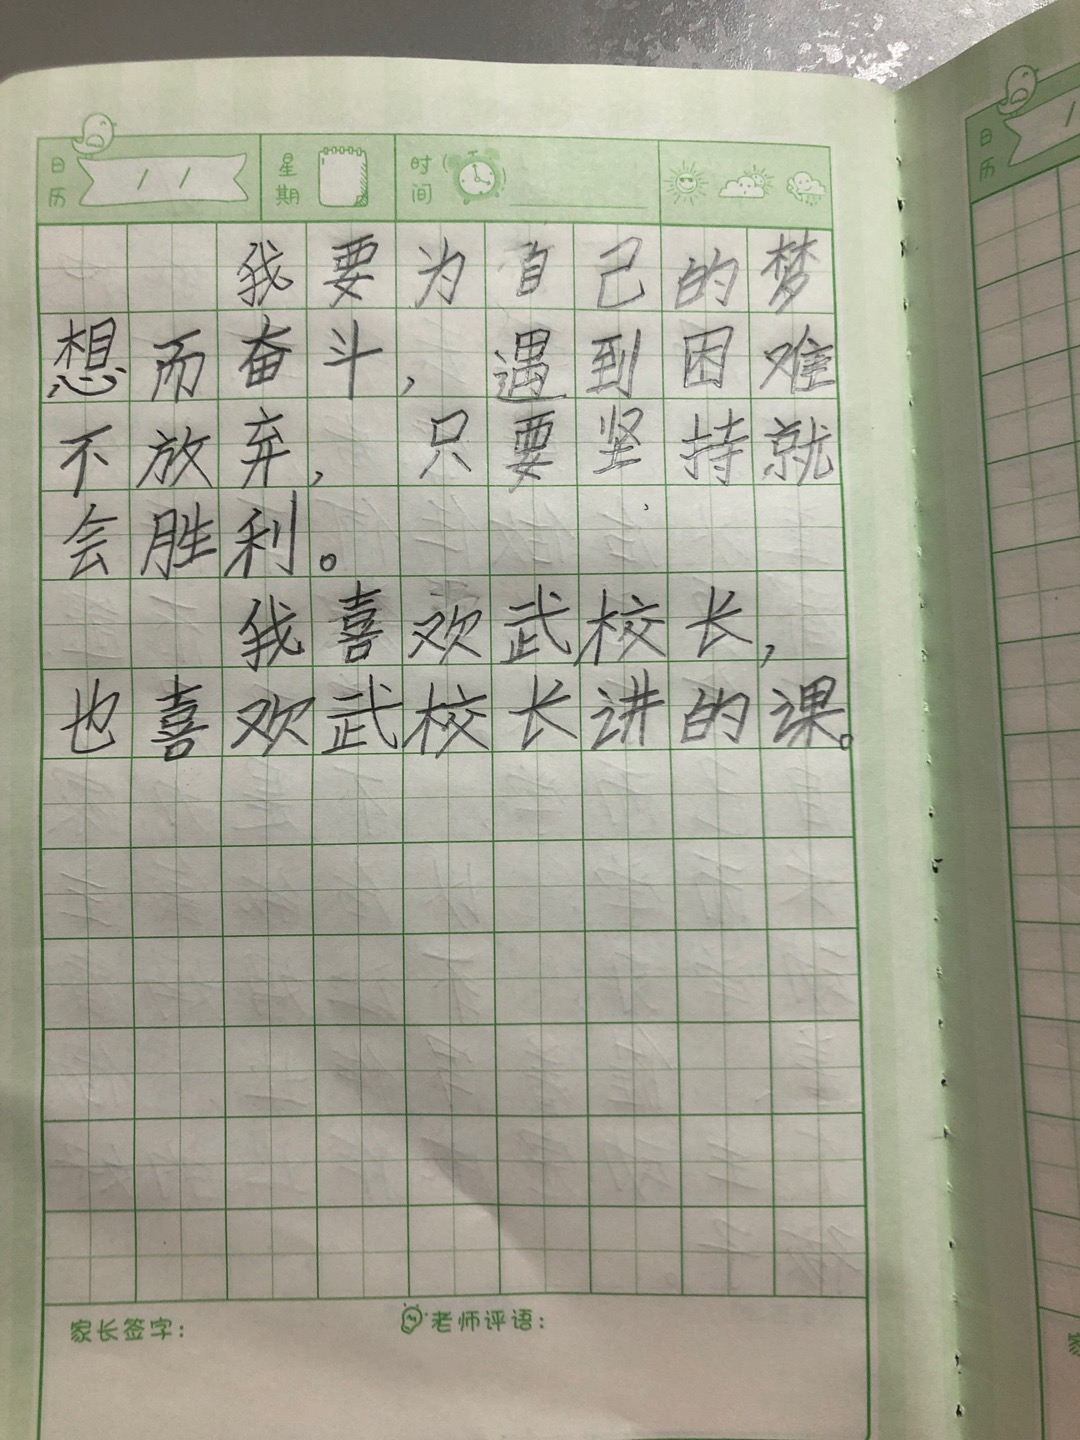 日历 / / 星期 时间
我要为自己的梦
想而奋斗，遇到困难
不放弃，只要坚持就
会胜利。
我喜欢武校长，
也喜欢武校长讲的课。
家长签字： 老师评语：
日历 /